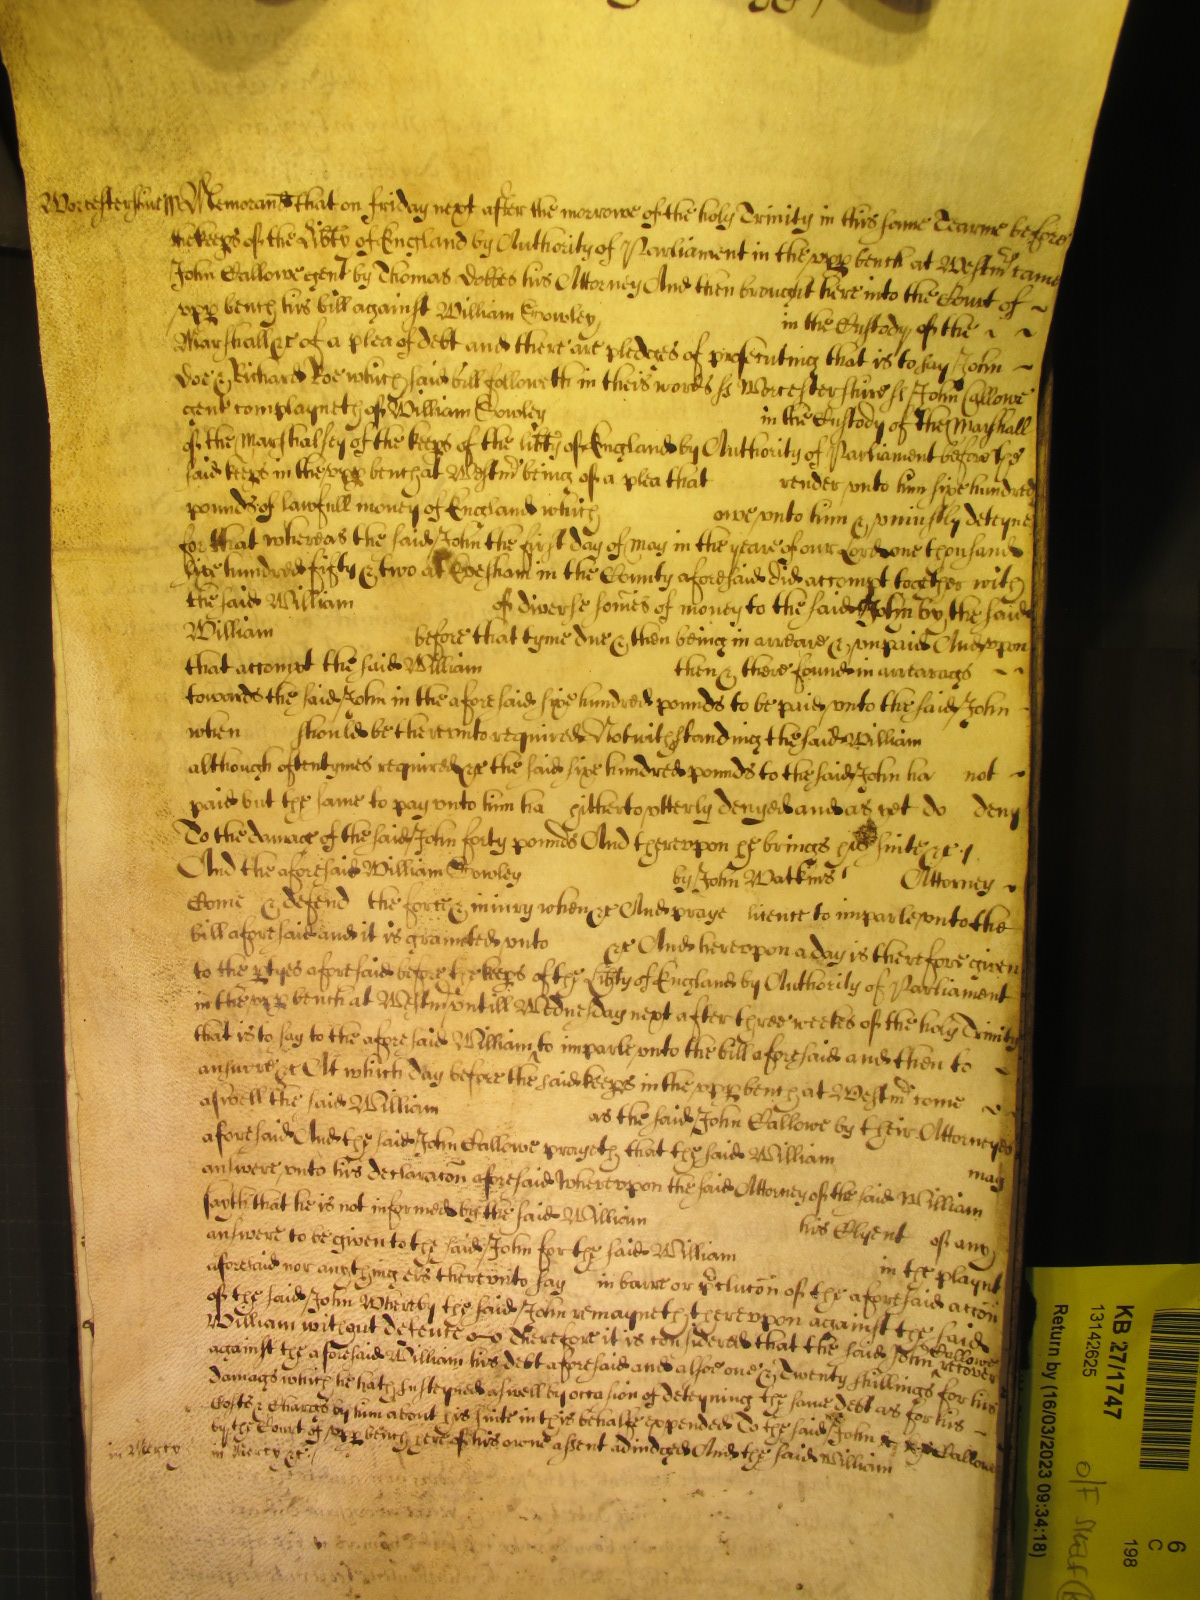 Worcestershire ss Memorand that on friday next after the morrowe of the holy Trinity in this same Tearme before
the keeps of the Libty of England by Authority of Parliament in the upp bench at Westmr came
John Callowe gent by Thomas Dobbes his Attorney And then brought here into the Court of
upp bench his bill against William Cowley in the Custody of the
Marshall &c of a plea of debt and there are pledges of prosecuting that is to say John
Doe & Richard Roe which said bill followeth in theis words ss Worcestershire ss John Callowe
gent complayneth of William Cowley in the Custody of the Marshall
of the Marshalsey of the keeps of the libty of England by Authority of Parliament before the
said keeps in the upp bench at Westmr being of a plea that render unto him sixe hundred
pounds of lawfull money of England which owe unto him & uniustly deteyne
for that whereas the said John the first day of May in the yeare of our Lord one thousand
sixe hundred fifty & two at Evesham in the County aforesaid did accompt together with
the said William of diverse somes of money to the said John by the said
William before that tyme due & then being in arreare & unpaid And upon
that accompt the said William then & there found in arrearags
towards the said John in the aforesaid sixe hundred pounds to be paid unto the said John
when should be thereunto required Notwithstanding the said William
although oftentymes required &c the said sixe hundred pounds to the said John ha not
paid but the same to pay unto him ha hitherto utterly denyed and as yet do deny
To the damage of the said John forty pounds And thereupon he brings his suite &c
And the aforesaid William Cowley by John Watkins Attorney
Come & defend the force & iniury when &c And praye licence to imparle unto the
bill aforesaid and it is graunted unto &c And hereupon a day is therefore given
to the ptyes aforesaid before the keeps of the Libty of England by Authority of Parliament
in the upp bench at Westmr untill Wednesday next after three weekes of the holy Trinity
that is to say to the aforesaid William to imparle unto the bill aforesaid and then to
answere &c At which day before the said keeps in the upp bench at Westmr come
aswell the said William as the said John Callowe by their Attorneyes
aforesaid And the said John Callowe prayeth that the said William may
answere unto his declaracon aforesaid Whereupon the said Attorney of the said William
sayth that he is not informed by the said William his Clyent of any
answere to be given to the said John for the said William in the playnt
aforesaid nor any thing els thereunto say in barre or pclucon of the aforesaid accon
of the said John Whereby the said John remayneth thereupon against the said
William without defence Therefore it is considered that the said John Callowe recover
against the aforesaid William his debt aforesaid and alsoe one & Twenty shillings for his
damags which he hath susteyned aswell by occasion of deteyning the same debt as for his
Costs & Chargs by him about his suite in this behalfe expended To the said John Callowe
by the Court of upp bench here of his owne assent adiudged And the said William
in Mercy in Mercy &c
KB 27/1747
13142625
Return by (16/03/2023 09:34:18)
6
C
198
O/F SHELF